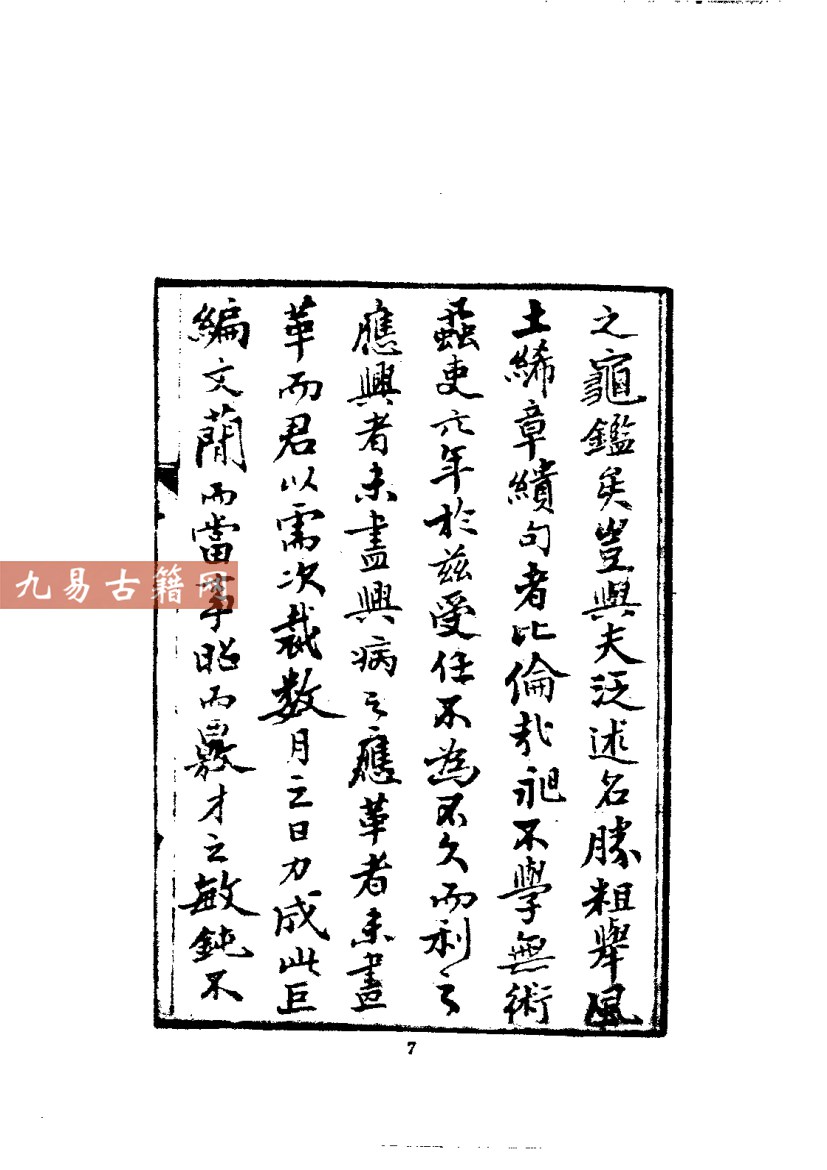 之龜鑑矣豈與夫泛述名勝粗舉風
土絺章繢句者比倫哉昶不學無術
蝨吏六年於茲受任不為不久而利之
應興者未盡興病之應革者未盡
革而君以需次裁數月之日力成此巨
編文簡而當事昭而覈才之敏鈍不
九易古籍网
7